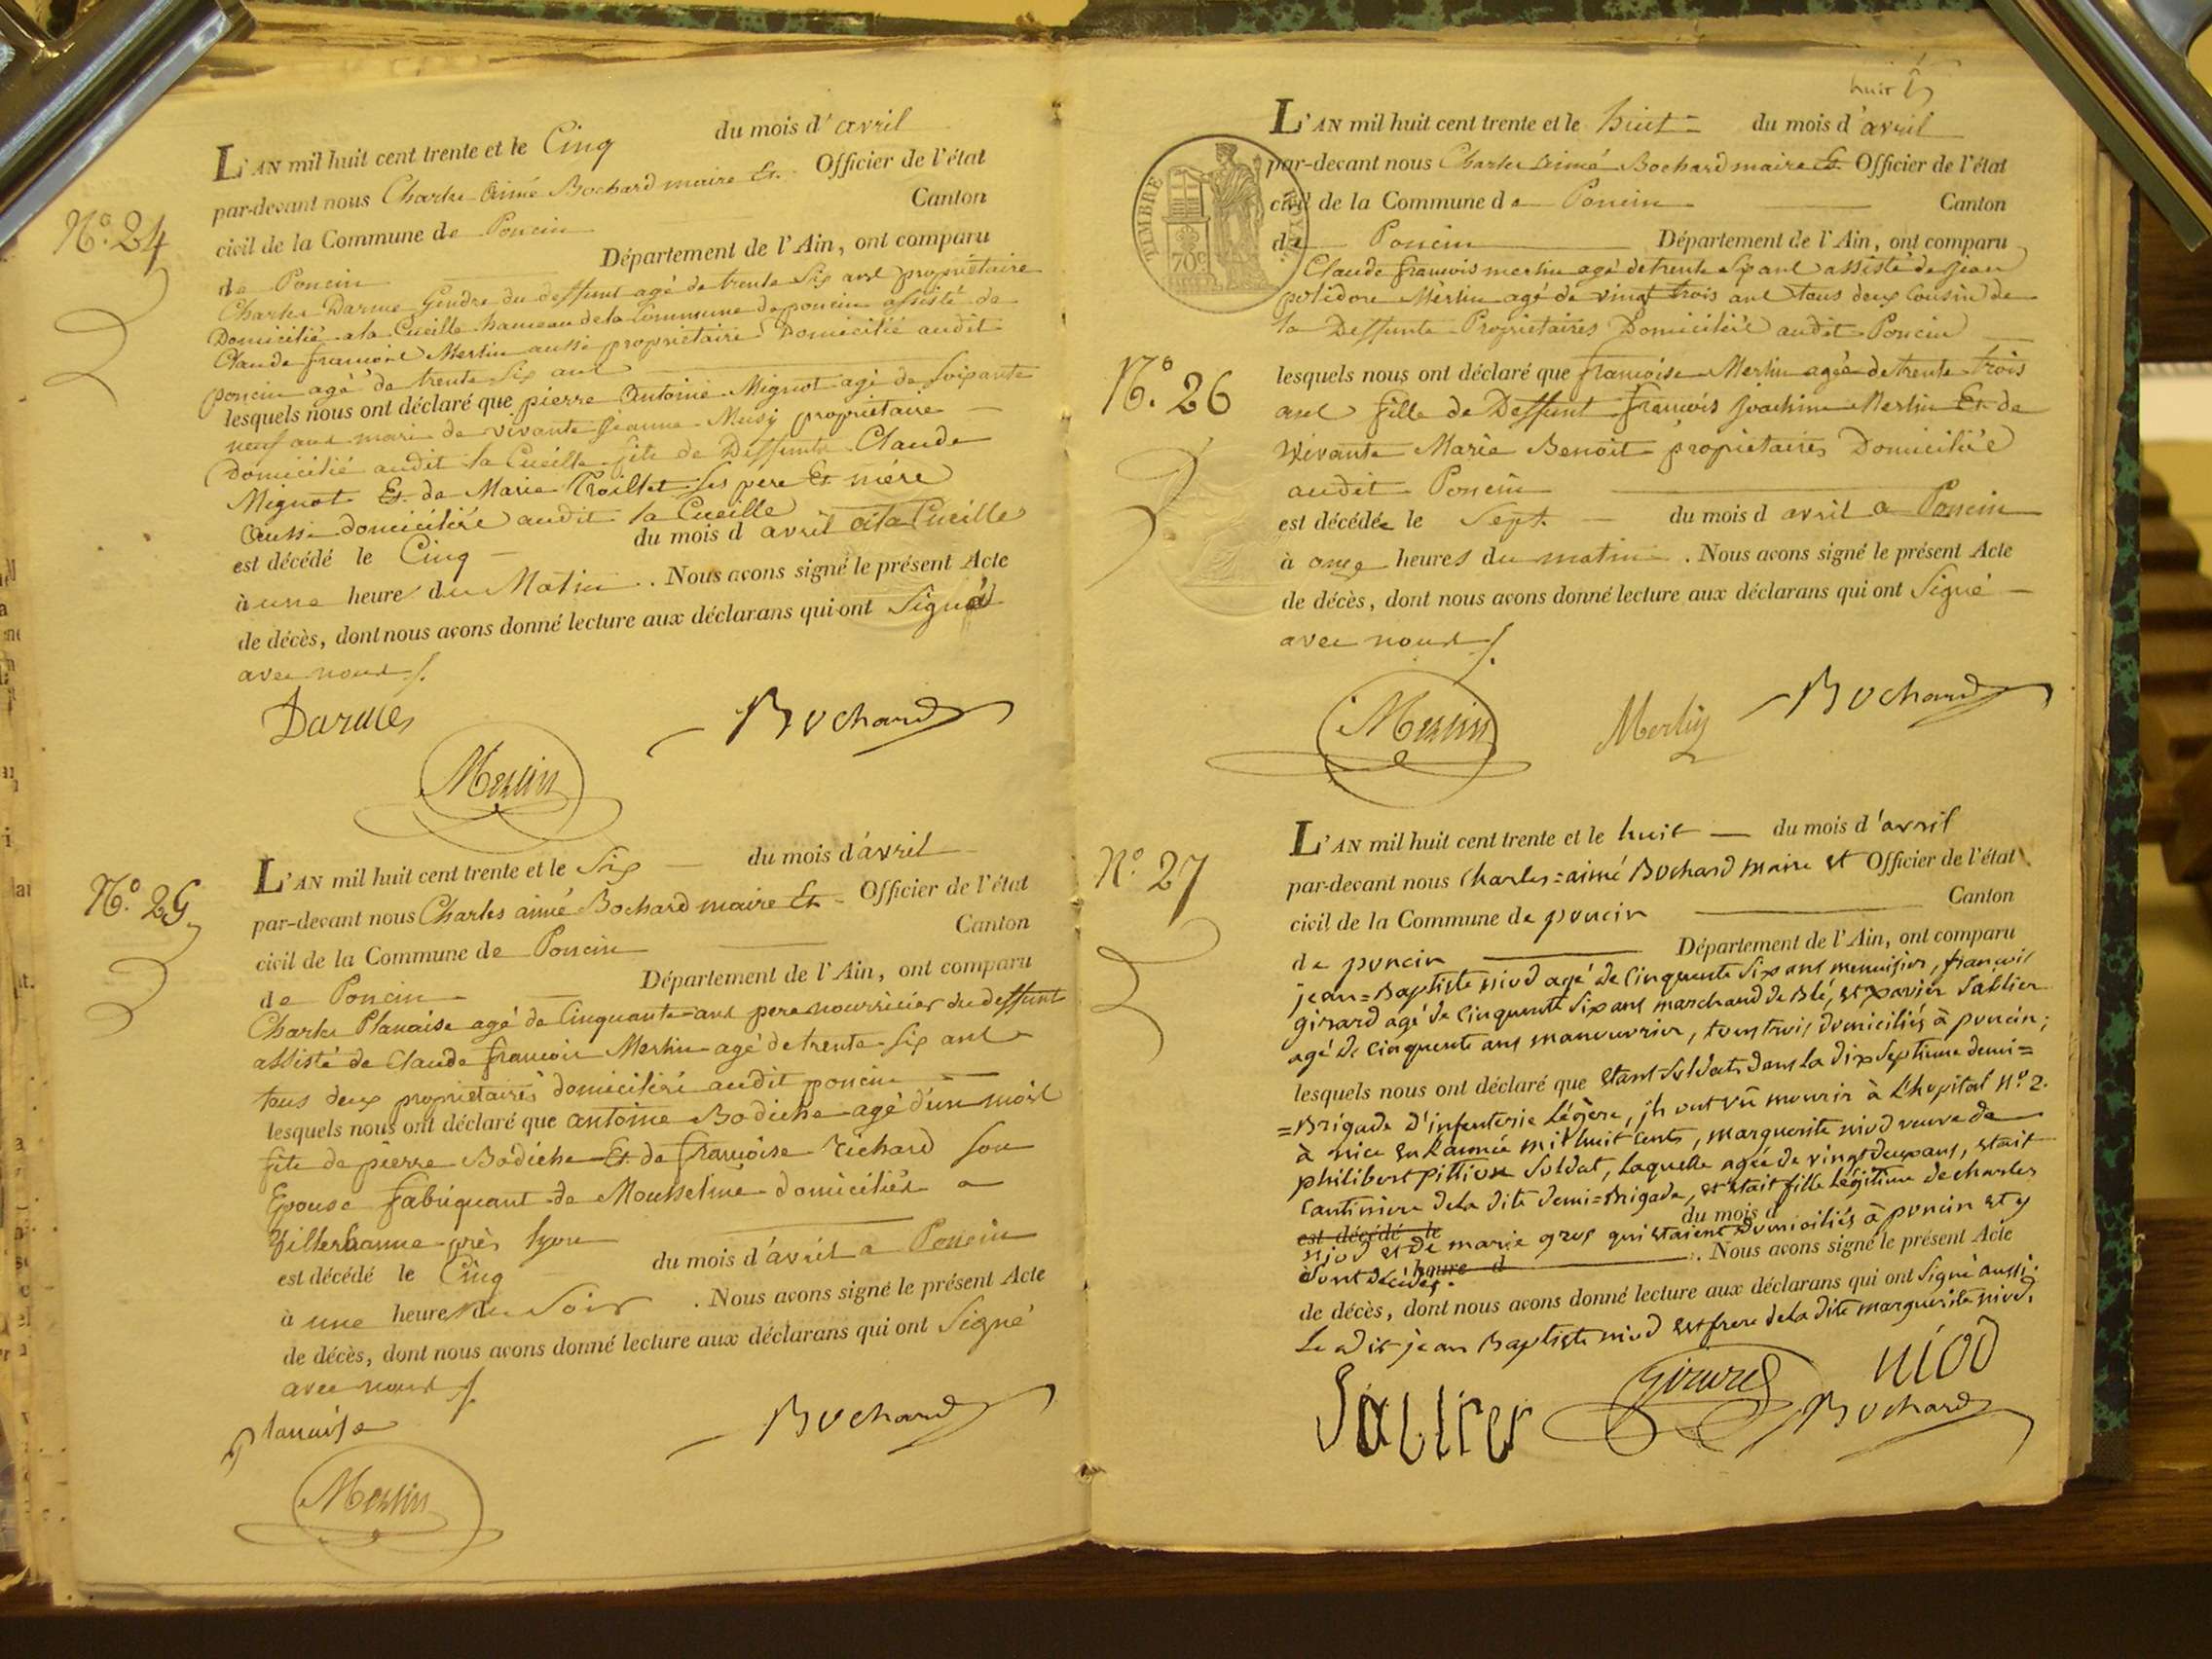 L'AN mil huit cent trente et le Cinq du mois d'avril
par-devant nous Charles aimé Bochard maire Et Officier de l'état
civil de la Commune de Poncin Canton
de Poncin Département de l'Ain, ont comparu
N.º 24
Charles Darme Gendre du deffunt agé de trente Six ans propriétaire
Domicilié a la Cueille hameau de la Commune de poncin assisté de
Claude françois Merlin aussi propriétaire Domicilié audit
poncin agé de trente Six ans
lesquels nous ont déclaré que pierre Antoine Mignot agé de Soixante
neuf ans mari de vivante jeanne Musy propriétaire
Domicilié audit la Cueille fils de Deffunts Claude
Mignot Et de Marie Troillet Ses pere Et mére
Aussi domiciliés audit la Cueille
est décédé le Cinq du mois d avril a la Cueille
à une heure du Matin . Nous avons signé le présent Acte
de décès, dont nous avons donné lecture aux déclarans qui ont Signé
avec nous
Darme
Merlin
Bochard
L'AN mil huit cent trente et le Six du mois d'avril
N.º 25
par-devant nous Charles aimé Bochard maire Et Officier de l'état
civil de la Commune de Poncin Canton
de Poncin Département de l'Ain, ont comparu
Charles Planaise agé de Cinquante ans pere nourricier du deffunt
assisté de Claude françois Merlin agé de trente Six ans
tous deux propriétaires domiciliés audit poncin
lesquels nous ont déclaré que antoine Bodiche agé d'un mois
fils de pierre Bodiche Et de françoise richard Son
Epouse fabriquant de Mousseline domiciliés a
Villeurbanne près lyon
est décédé le Cinq du mois d'avril a Poncin
à une heure du Soir . Nous avons signé le présent Acte
de décès, dont nous avons donné lecture aux déclarans qui ont Signé
avec nous
planaise
Bochard
Merlin
huit
L'AN mil huit cent trente et le huit du mois d'avril
par-devant nous Charles aimé Bochard maire Et Officier de l'état
civil de la Commune de Poncin Canton
de Poncin Département de l'Ain, ont comparu
TIMBRE ROYAL
70c
Claude francois merlin agé de trente Six ans assisté de jean
polidore Merlin agé de vingt trois ans tous deux Cousin de
la Deffunte Propriétaires Domiciliés audit Poncin
N.º 26
lesquels nous ont déclaré que françoise Merlin agée de trente trois
ans fille de Deffunt françois joachim Merlin Et de
Vivante Marie Benoit propriétaires Domiciliée
audit Poncin
est décédée le Sept du mois d avril a Poncin
à onze heures du matin . Nous avons signé le présent Acte
de décès, dont nous avons donné lecture aux déclarans qui ont Signé
avec nous
Merlin
Merlin
Bochard
L'AN mil huit cent trente et le huit du mois d'avril
N.º 27
par-devant nous Charles=aimé Bochard maire et Officier de l'état
civil de la Commune de poncin Canton
de poncin Département de l'Ain, ont comparu
jean=Baptiste niod agé de Cinquante Six ans menuisier, françois
girard agé de Cinquante Six ans marchand de Blé, et xavier Sablier
agé de Cinquante ans manouvrier, tous trois domiciliés à poncin;
lesquels nous ont déclaré que étant Soldats dans La dix Septieme demi=
=Brigade d'infanterie Légère, ils ont vû mourir à L'hopital N.º 2.
à nice en L'année mil huit Cents, marguerite niod veuve de
philibert pittion Soldat, Laquelle agée de vingt deux ans, était
Cantiniere de La dite demi=Brigade, et était fille Légitime de charles
est décédé le du mois d
niod et de marie gros qui étaient domiciliés à poncin et y
Sont décédés. à heure d . Nous avons signé le présent Acte
de décès, dont nous avons donné lecture aux déclarans qui ont Signé aussi.
Le dit jean Baptiste niod est frere de La dite marguerite niod.
girard
niod
Bochard